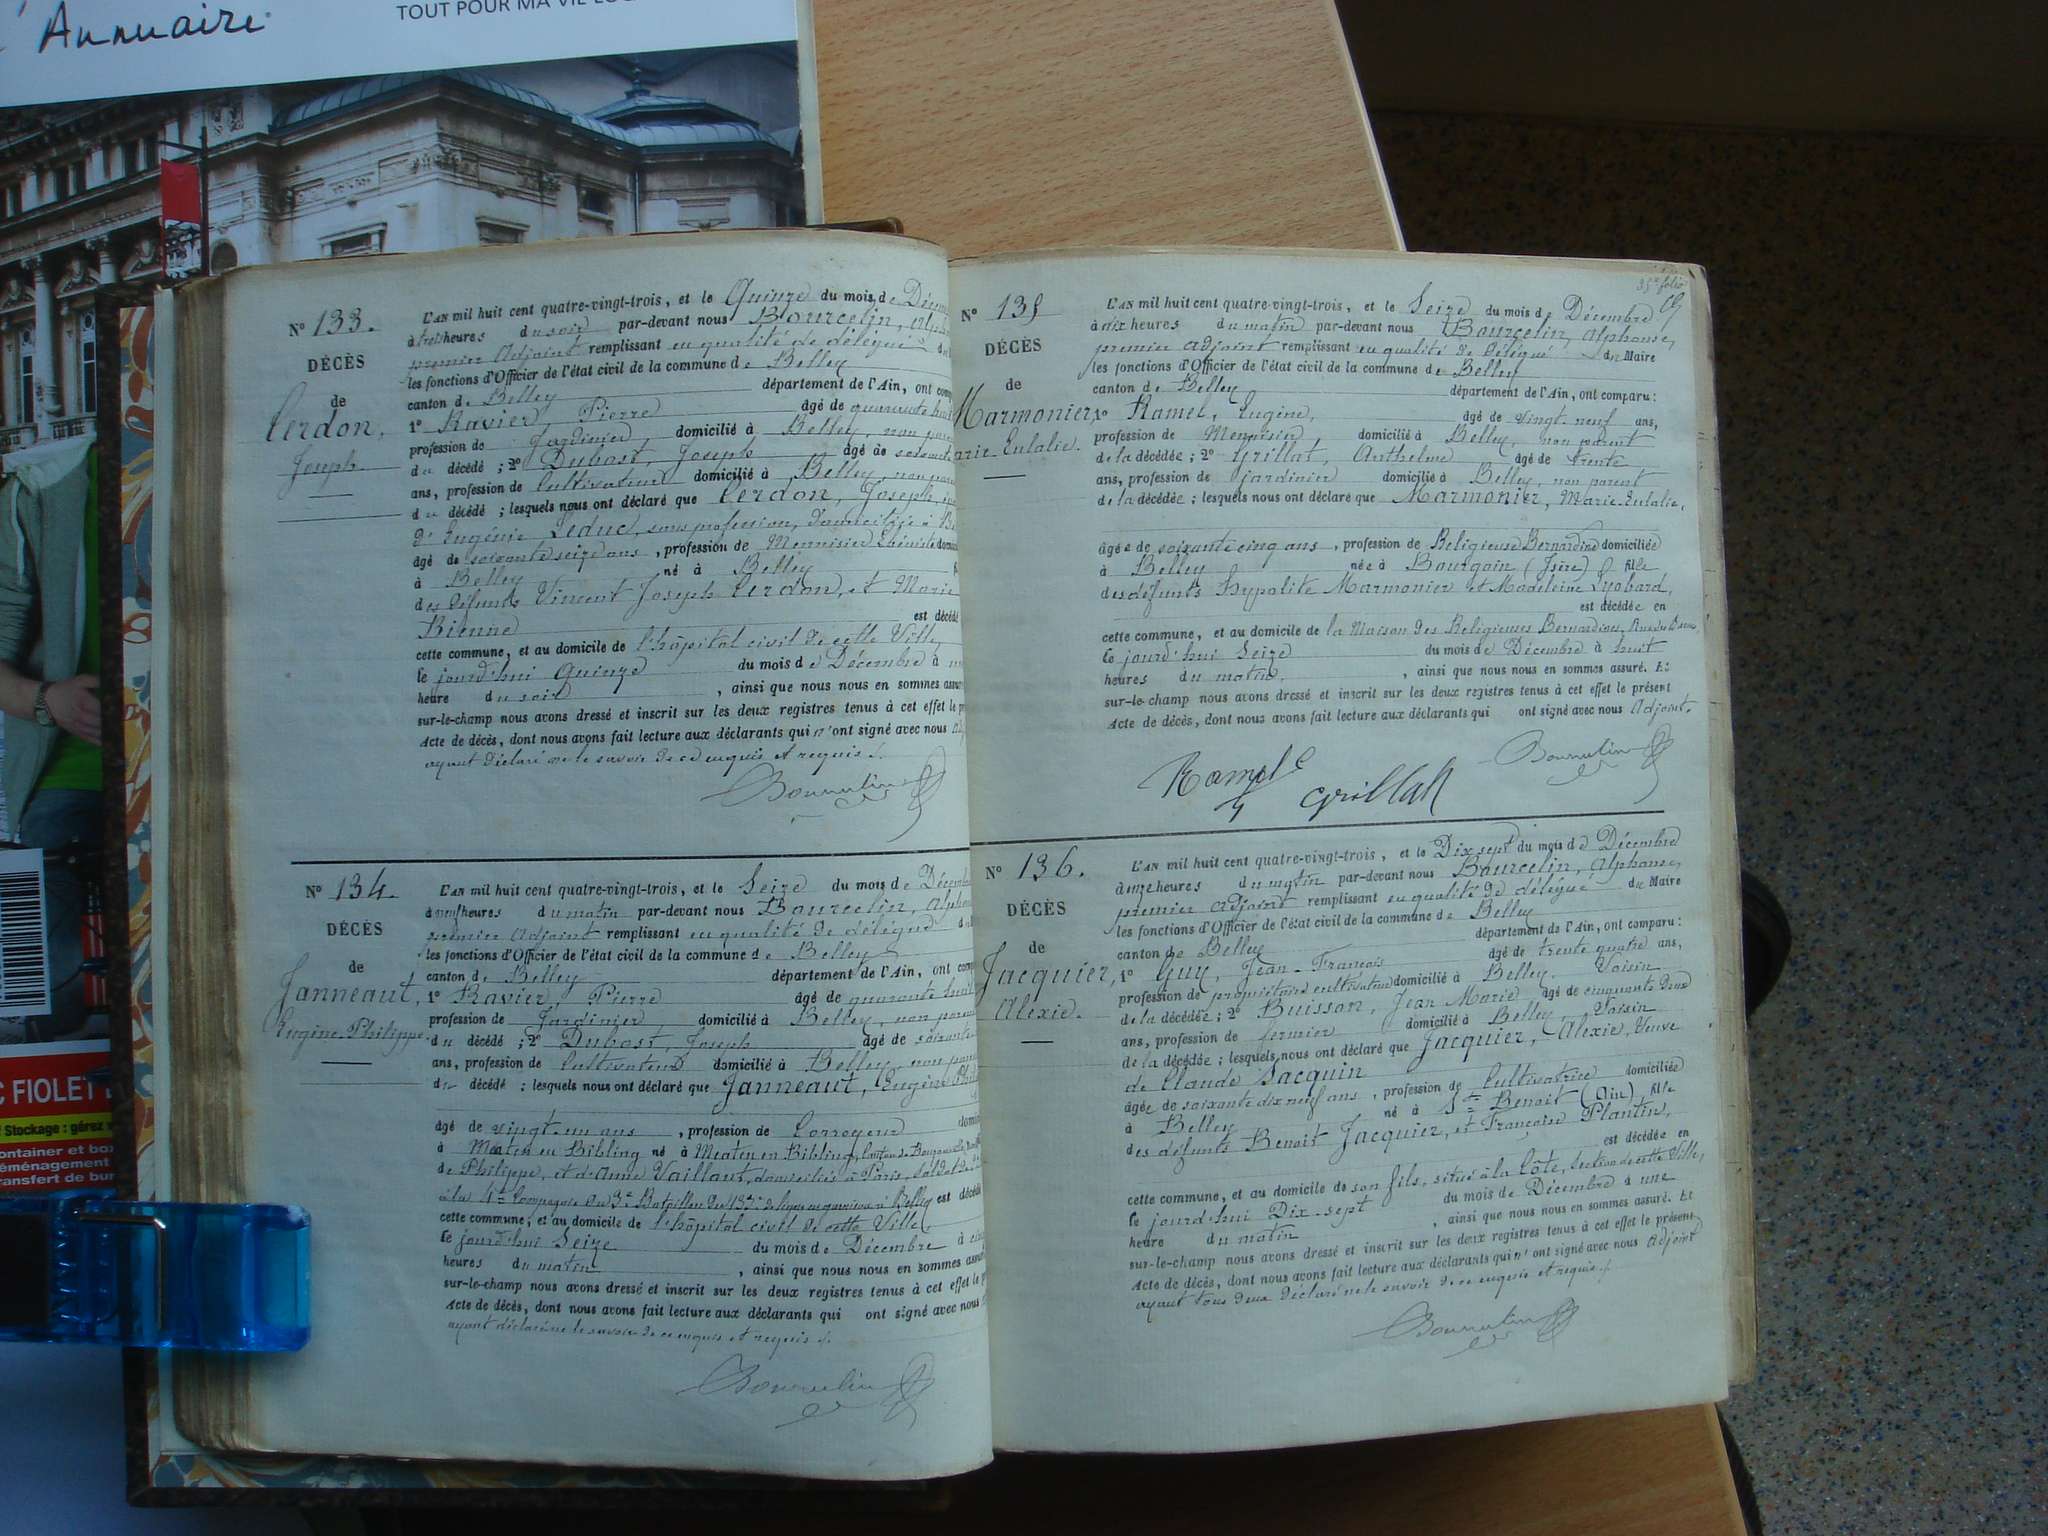 Annuaire
TOUT POUR MA VIE
C FIOLET
Stockage : gérez
ontainer et box
éménagement
ransfert de bur
N° 133.
DÉCÈS
de
Cerdon,
Joseph.
L'AN mil huit cent quatre-vingt-trois, et le Quinze du mois de
heures du soir par-devant nous Bourcelin,
premier Adjoint remplissant en qualité de délégué
les fonctions d'Officier de l'état civil de la commune de Belley
canton de Belley département de l'Ain, ont
1° Ravier, Pierre âgé de quarante huit
profession de Jardinier, domicilié à Belley, non
du décédé ; 2° Dubost, Joseph âgé de
ans, profession de Cultivateur domicilié à Belley, non
du décédé ; lesquels nous ont déclaré que Cerdon, Joseph,
d'Eugénie Leduc, sans profession, domiciliée à
âgé de soixante seize ans, profession de Menuisier Ebéniste
à Belley né à Belley
des défunts Vincent Joseph Cerdon, et Marie
Bienne est décédé
cette commune, et au domicile de l'hôpital civil de cette Ville,
le jourd'hui Quinze du mois de Décembre à
heure du soir, ainsi que nous nous en sommes
sur-le-champ nous avons dressé et inscrit sur les deux registres tenus à cet effet le
Acte de décès, dont nous avons fait lecture aux déclarants qui n'ont signé avec nous
ayant déclaré ne le savoir de ce enquis et requis
N° 134.
DÉCÈS
de
Janneaut,
Eugène-Philippe
L'AN mil huit cent quatre-vingt-trois, et le Seize du mois de
à neuf heures du matin par-devant nous Bourcelin,
premier Adjoint remplissant en qualité de délégué
les fonctions d'Officier de l'état civil de la commune de Belley
canton de Belley département de l'Ain, ont
1° Ravier, Pierre âgé de quarante huit
profession de Jardinier domicilié à Belley, non
du décédé ; 2° Dubost, Joseph âgé de soixante
ans, profession de Cultivateur domicilié à Belley, non
du décédé ; lesquels nous ont déclaré que Janneaut, Eugène
âgé de vingt-un ans, profession de Corroyeur
à Meaten en Bibling né à Meaten en Bibling,
de Philippe, et d'Anne Vaillant, domiciliés à Paris, soldat
à la 4e Compagnie du 3e Bataillon du 133e de ligne en garnison à Belley est décédé
cette commune, et au domicile de l'hôpital civil de cette Ville,
le jourd'hui Seize du mois de Décembre à
heures du matin, ainsi que nous nous en sommes
sur-le-champ nous avons dressé et inscrit sur les deux registres tenus à cet effet le
Acte de décès, dont nous avons fait lecture aux déclarants qui ont signé avec nous
ayant déclaré ne le savoir de ce enquis et requis
35e folio
N° 135
DÉCÈS
de
Marmonier,
Marie-Eulalie.
L'AN mil huit cent quatre-vingt-trois, et le Seize du mois de Décembre
à dix heures du matin par-devant nous Bourcelin, Alphonse,
premier adjoint remplissant en qualité de délégué du Maire
les fonctions d'Officier de l'état civil de la commune de Belley
canton de Belley département de l'Ain, ont comparu :
1° Ramel, Eugène, âgé de vingt-neuf ans,
profession de Menuisier, domicilié à Belley, non parent
de la décédée ; 2° Grillat, Anthelme âgé de trente
ans, profession de jardinier domicilié à Belley, non parent
de la décédée ; lesquels nous ont déclaré que Marmonier, Marie-Eulalie,
âgée de soixante cinq ans, profession de Religieuse Bernardine domiciliée
à Belley née à Bourgoin (Isère) fille
des défunts Hypolite Marmonier et Madeleine Lyobard,
est décédée en
cette commune, et au domicile de la Maison des Religieuses Bernardines,
le jourd'hui Seize du mois de Décembre à huit
heures du matin, ainsi que nous nous en sommes assuré. Et
sur-le-champ nous avons dressé et inscrit sur les deux registres tenus à cet effet le présent
Acte de décès, dont nous avons fait lecture aux déclarants qui ont signé avec nous Adjoint.
Ramel E
Grillat
N° 136.
DÉCÈS
de
Jacquier,
Alexie.
L'AN mil huit cent quatre-vingt-trois, et le Dix sept du mois de Décembre
à onze heures du matin par-devant nous Bourcelin, Alphonse,
premier adjoint remplissant en qualité de délégué du Maire
les fonctions d'Officier de l'état civil de la commune de Belley
canton de Belley département de l'Ain, ont comparu :
1° Guy, Jean-François âgé de trente quatre ans,
profession de propriétaire cultivateur domicilié à Belley. Voisin
de la décédée ; 2° Buisson, Jean Marie âgé de cinquante deux
ans, profession de fermier domicilié à Belley, Voisin
de la décédée ; lesquels nous ont déclaré que Jacquier, Alexie, Veuve
de Claude Jacquin
âgée de soixante dix neuf ans, profession de Cultivatrice domiciliée
à Belley né à St Benoit (Ain) fille
des défunts Benoit Jacquier, et Françoise Plantin,
est décédée en
cette commune, et au domicile de son fils, situé à la Côte, section de cette Ville,
le jourd'hui Dix-sept du mois de Décembre à une
heure du matin, ainsi que nous nous en sommes assuré. Et
sur-le-champ nous avons dressé et inscrit sur les deux registres tenus à cet effet le présent
Acte de décès, dont nous avons fait lecture aux déclarants qui n'ont signé avec nous adjoint
ayant tous deux déclaré ne le savoir de ce enquis et requis